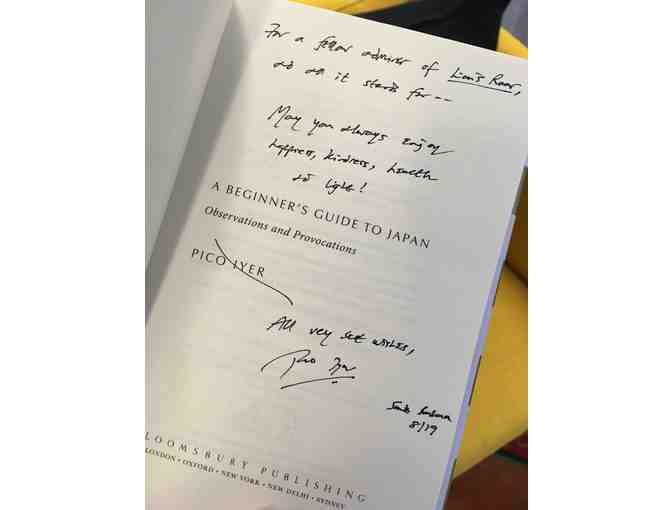 For a fellow admirer of Lion's Roar,
& all it stands for --
May you always enjoy
happiness, kindness, health
& light!
A BEGINNER'S GUIDE TO JAPAN
Observations and Provocations
PICO IYER
All very best wishes,
Pico Iyer
Santa Barbara
8/19
LOOMSBURY PUBLISHING
LONDON • OXFORD • NEW YORK • NEW DELHI • SYDNEY